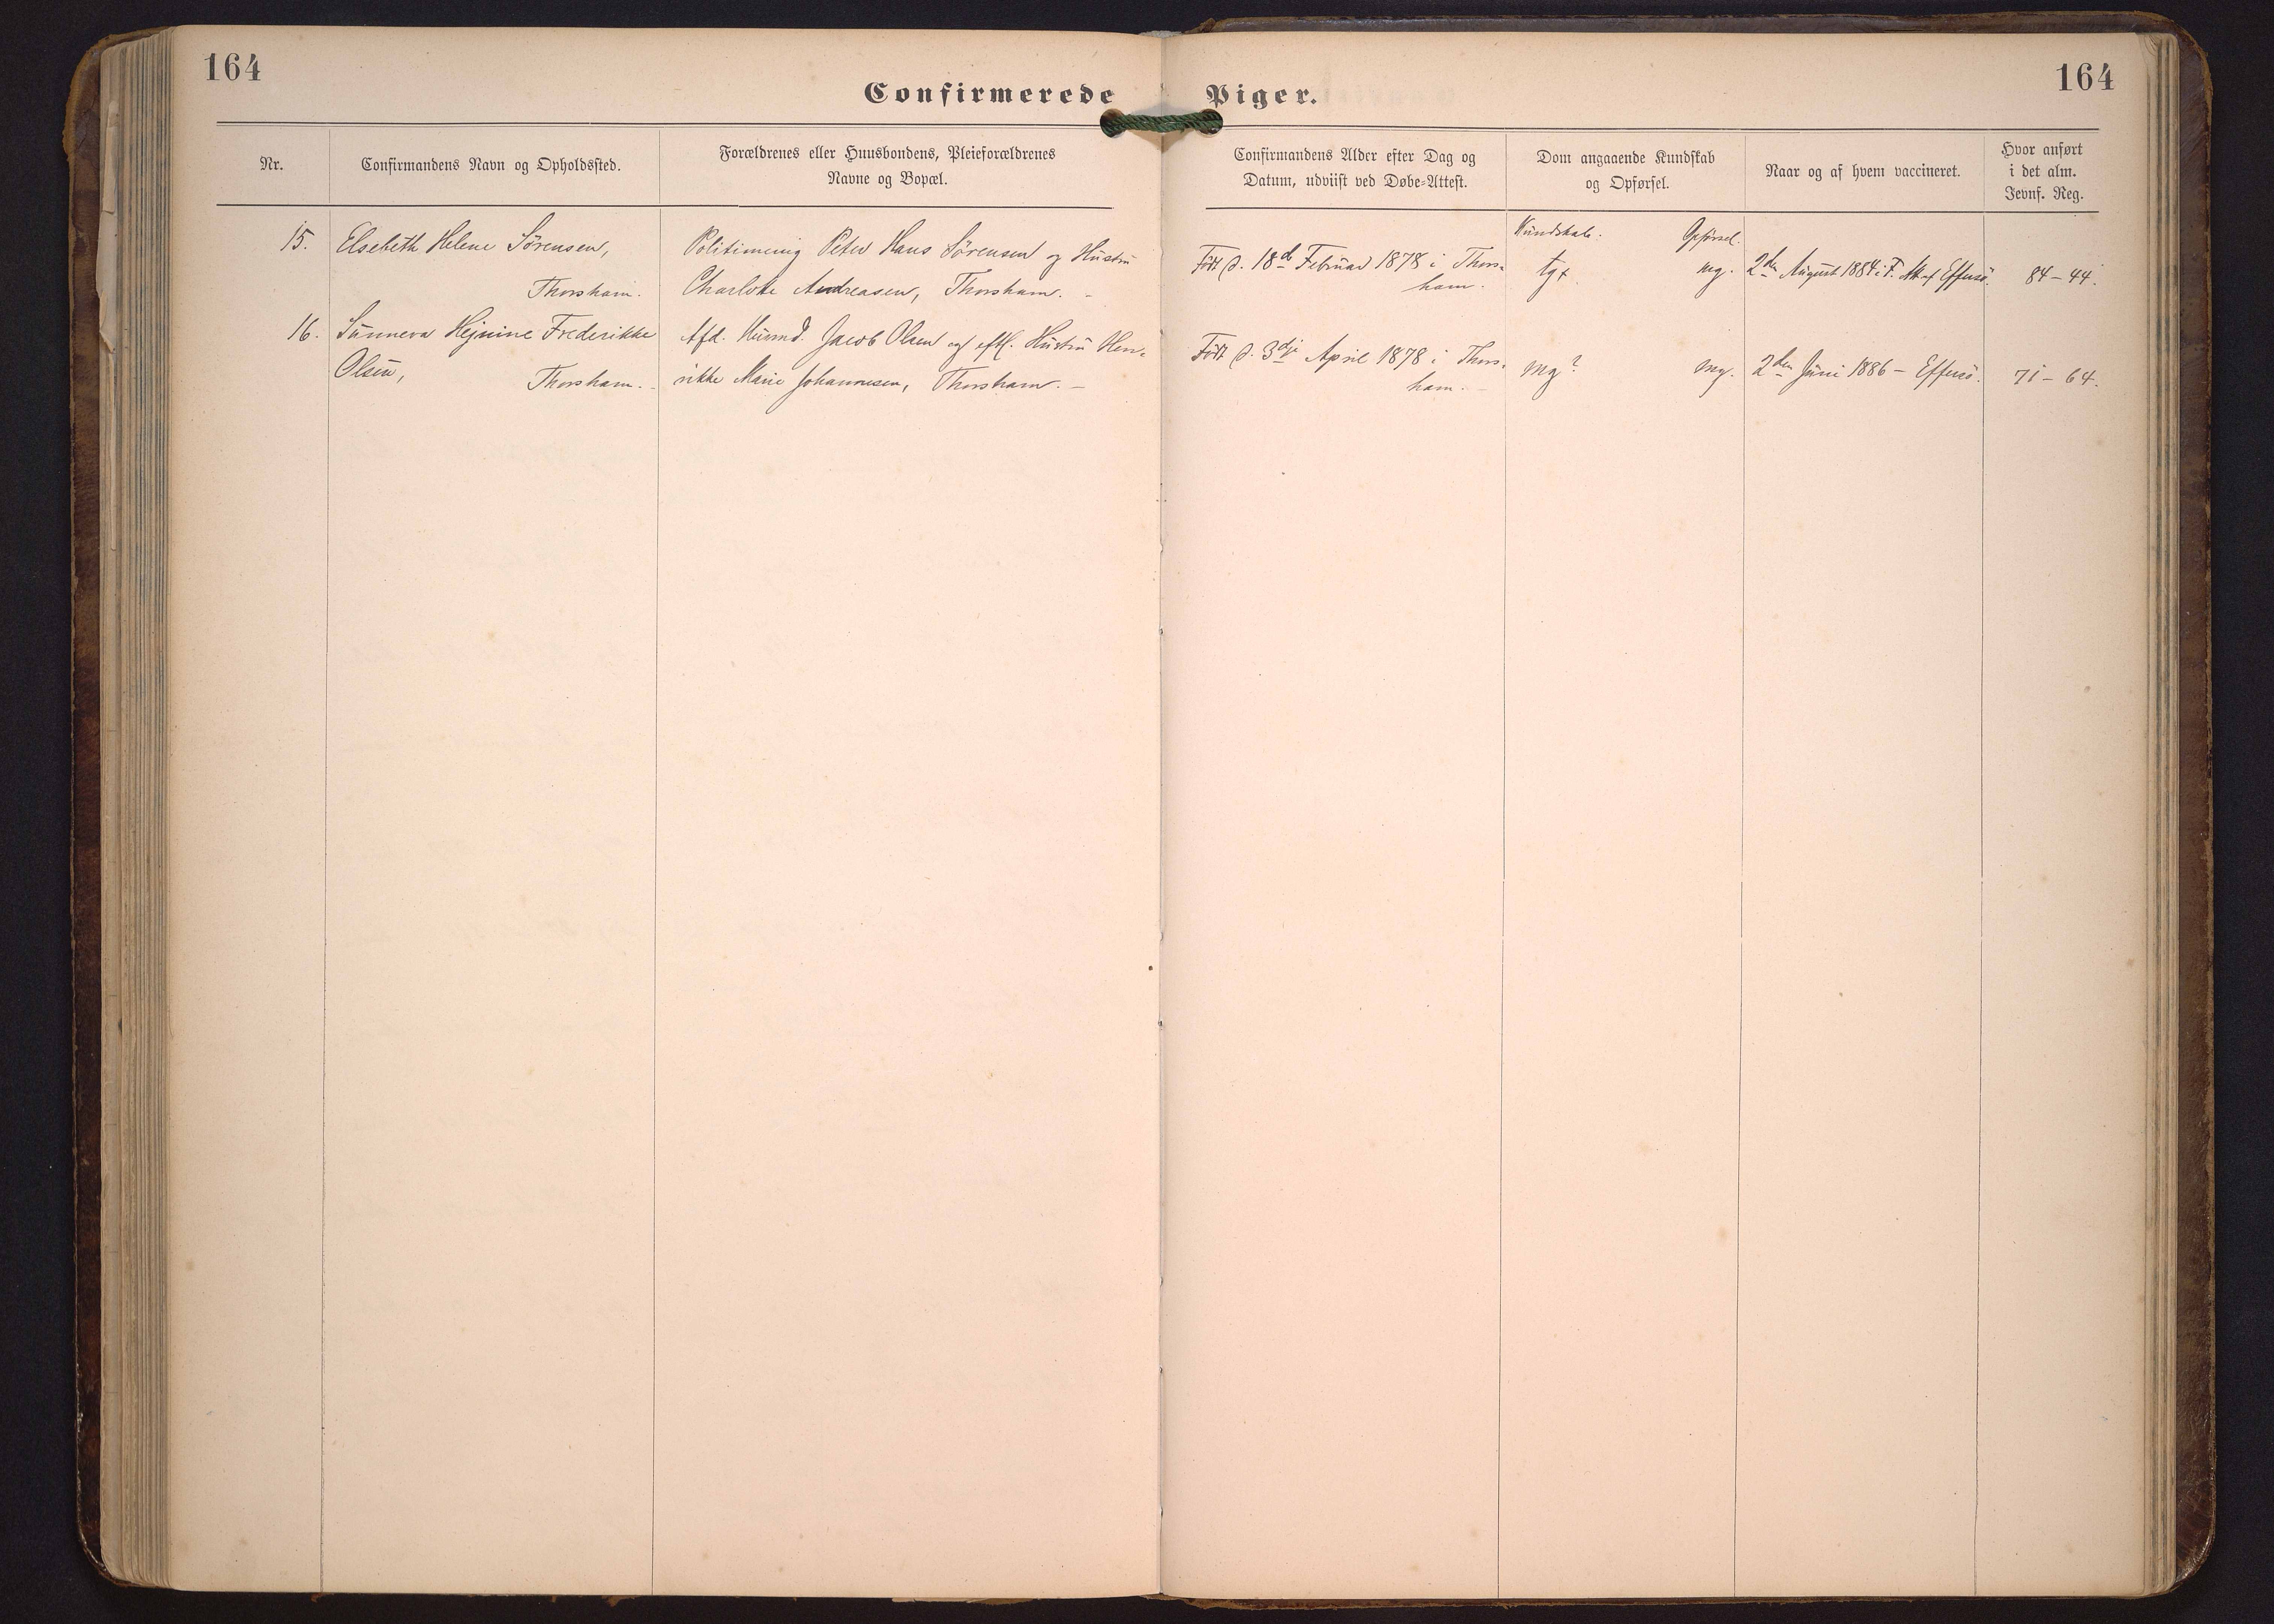 164
164
Confirmerede Piger.
Nr.
Confirmandens Navn og Opholdssted.
Forældrenes eller Huusbondens, Pleieforældrenes
Navne og Bopæl.
Confirmandens Alder efter Dag og
Datum, udviist ved Døbe-Attest.
Dom angaaende Kundskab
og Opførsel.
Naar og af hvem vaccineret.
Hvor anført
i det alm.
Jevnf. Reg.
Kundskab. Opførsel.
15. Elsebeth Helene Sørensen,
Thorshavn.
Politimenig Peter Hans Sørensen og Hustru
Charlotte Andreasen, Thorshavn. -
Født d. 18de Februar 1878 i Thors-
havn.
tg+
mg.
2den August 1884 i F. af Effersö.
84 - 44.
16. Sunneva Hejnine Frederikke
Olsen,
Thorshavn. -
Afd. Huusmd. Jacob Olsen og eftl. Hustru Hen-
rikke Marie Johannesen, Thorshavn. -
Født d. 3dje April 1878 i Thors-
havn. -
mg?
mg.
2den Juni 1886 - Effersö.
71 - 64.